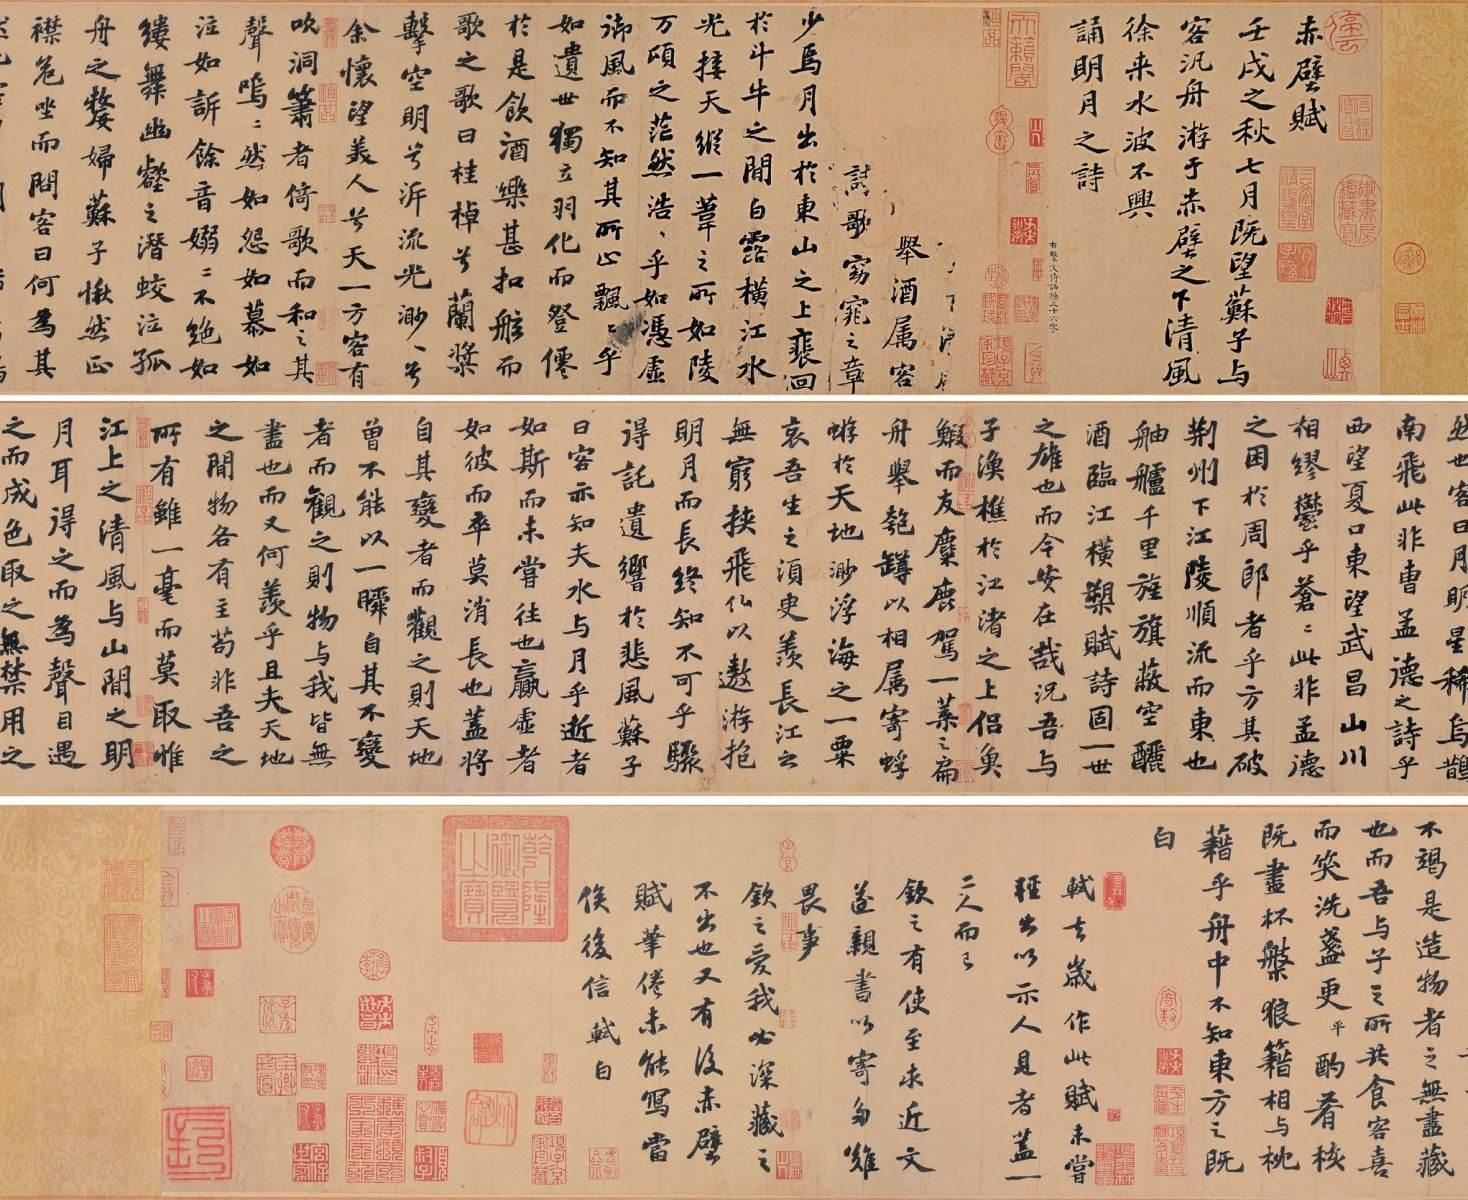 赤壁賦
壬戌之秋七月既望蘇子与
客汎舟游于赤壁之下清風
徐来水波不興
誦明月之詩
舉酒属客
歌窈窕之章
少焉月出於東山之上裴回
於斗牛之間白露横江水
光接天縱一葦之所如陵
万頃之茫然浩〻乎如馮虚
御風而不知其所止飄〻乎
如遺世獨立羽化而登僊
於是飲酒樂甚扣舷而
歌之歌曰桂棹兮蘭槳
擊空明兮泝流光渺〻兮
余懷望美人兮天一方客有
吹洞簫者倚歌而和之其
聲嗚〻然如怨如慕如
泣如訴餘音嫋〻不絶如
縷舞幽壑之潛蛟泣孤
舟之嫠婦蘇子愀然正
襟危坐而問客曰何為其
然也客曰月明星稀烏鵲
南飛此非曹孟德之詩乎
西望夏口東望武昌山川
相繆鬱乎蒼〻此非孟德
之困於周郎者乎方其破
荆州下江陵順流而東也
舳艫千里旌旗蔽空釃
酒臨江横槊賦詩固一世
之雄也而今安在哉況吾与
子漁樵於江渚之上侣魚
鰕而友麋鹿駕一葉之扁
舟舉匏罇以相属寄蜉
蝣於天地渺浮海之一粟
哀吾生之須臾羨長江之
無窮挾飛仙以遨游抱
明月而長終知不可乎驟
得託遺響於悲風蘇子
曰客亦知夫水与月乎逝者
如斯而未甞往也贏虚者
如彼而卒莫消長也盖將
自其變者而觀之則天地
曾不能以一瞬自其不變
者而觀之則物与我皆無
盡也而又何羨乎且夫天地
之間物各有主苟非吾之
所有雖一毫而莫取惟
江上之清風与山間之明
月耳得之而為聲目遇
之而成色取之無禁用之
不竭是造物者之無盡藏
也而吾与子之所共食客喜
而笑洗盞更平酌肴核
既盡杯盤狼籍相与枕
籍乎舟中不知東方之既
白
軾去歳作此賦未嘗
輕出以示人見者盖一
二人而已
欽之有使至求近文
遂親書以寄多難
畏事
欽之愛我必深藏之
不出也又有後赤壁
賦筆倦未能寫當
俟後信軾白